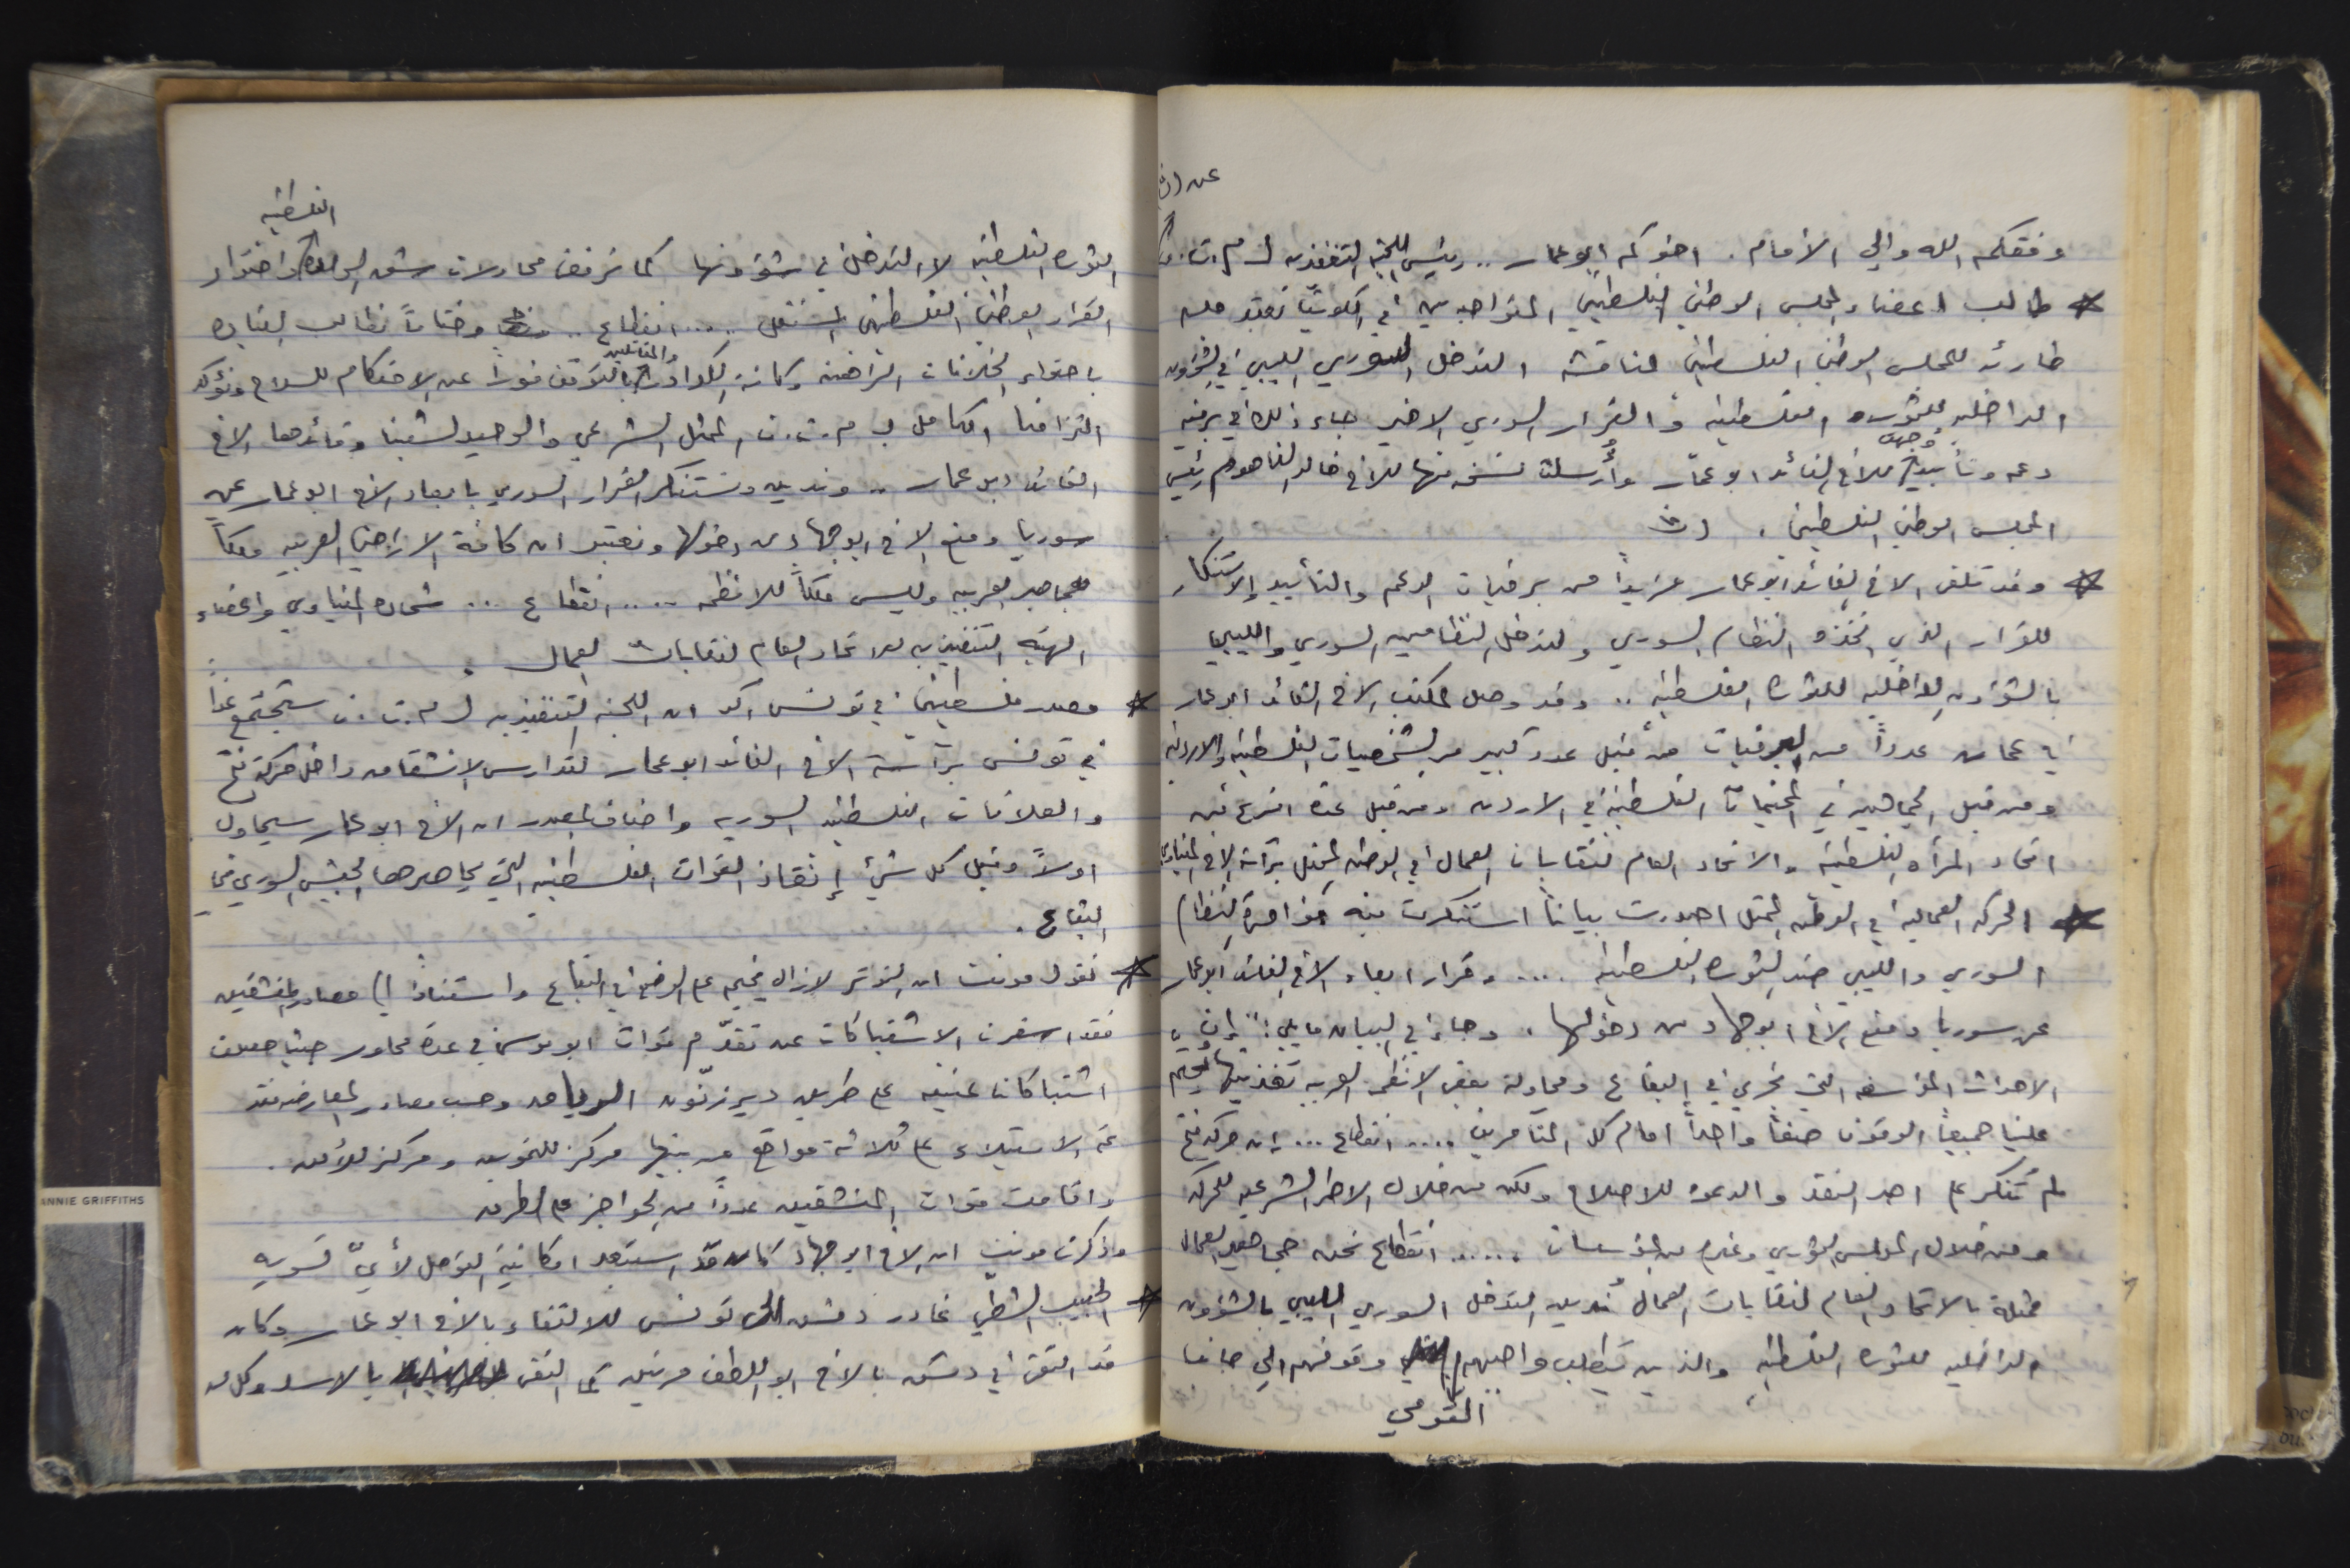 عن (ث)
وفقكم الله والى الأمام . اخوكم ابو عمار .. رئيس اللجنة التنفيذيه ل م.ت.ف
* طالب اعضاء المجلس الوطني الفلسطيني المتواجدين في الكويت بعقد جلسه
طارئه للمجلس الوطني الفلسطيني لمناقشة التدخل السوري الليبي في الشؤون
الداخليه للثوره الفلسطينيه و القرار السوري الاخير جاء ذلك في برقيه
دعم وتأييد وجهت للاخ القائد ابو عمّار وأُرسلت نسخه منها للاخ خالد الفاهوم رئيس
المجلس الوطني الفلسطيني .
* وقد تلقى الاخ القائد ابو عمار مزيداً من برقيات الدعم والتأييد والاستنكار
للقرار الذي اتخذه النظام السوري ولتدخل النظامين السوري والليبي
بالشؤون الداخليه للثوره الفلسطينيه .. وقد وصل لمكتب الاخ القائد ابو عمار
في عمان عدداً من البرقيات من قبل عدد كبير من الشخصيات الفلسطينيه والاردنيه
ومن قبل الجماهير في المخيمات الفلسطينيه في الاردن ومن قبل عدة افرع من
اتحاد المرأه الفلسطينيه والاتحاد العام لنقابات العمال في الوطن المحتل برآسة الاخ المنياوي
* الحركه العماليه في الوطن المحتل اصدرت بياناً استنكرت فيه مؤامرة النظام
السوري والليبي ضد الثوره الفلسطينيه .... وقرار ابعاد الاخ القائد ابو عمار
عن سوريا ومنع الاخ ابو جهاد من دخولها . وجاء في البيان مايلي : "إن
الاحداث المؤسفه التي تجري في البقاع ومحاولة بعض الانظمه العربيه تغذيتها تحتم
علينا جميعاً الوقوف صفاً واحداً امام كل المتامرين .... انقطاع ... إن حركة فتح
لم تنكر على احد النقد والدعوه للاصلاح ولكن من خلال الاطر الشرعيه للحركه
ومن خلال المجلس الثوري وغيره من المؤسسات ...... انقطاع نحن جماهير العمال
ممثلة بالاتحاد العام لنقابات العمال نُدين التدخل السوري الليبي بالشؤون
الداخليه للثوره الفلسطينيه والذين يتطلب واجبهم القومي وقوفهم الى جانب
الفلسطينيه
الثوره الفلسطينيه لا التدخل في شؤونها كما نرفض محاولات شق الوحدة واحتواء
القرار الوطني الفلسطيني المستقل .... انقطاع .. وختاماً نطالب القياده
باحتواء الخلافات الراهنه وكافة الكوادر والمقاتلين بالتوقف فوراً عن الاحتكام للسلاح ونؤكد
التزامنا الكامل ب م.ت.ف الممثل الشرعي والوحيد لشعبنا وقائدها الاخ
القائد ابو عمار .. وندين ونستنكر القرار السوري بابعاد الاخ ابو عمار عن
سوريا ومنع الاخ ابو جهاد من دخولها ونعتبر ان كافة الاراضي العربيه ملكاً
للجماهير العربيه وليس ملكاً للانظمه .... انقطاع ... شحاده المنياوي واعضاء
الهيئه التنفيذيه للاتحاد العام لنقابات العمال .
* مصدر فلسطيني في تونس اكد ان اللجنه التنفيذيه ل م.ت.ف ستجتمع غداً
في تونس برآسة الاخ القائد ابو عمار لتدارس الانشقاق داخل حركة فتح
والعلاقات الفلسطينيه السوريه واضاف المصدر ان الاخ ابو عمار سيحاول
اولاً وقبل كل شيء إنقاذ القوات الفلسطينيه التي يحاصرها الجيش السوري في
البقاع .
* تقول مونت ان التوتر لازال يخيم على الوضع في البقاع واستناداً الى مصادر المنشقين
فقد اسفرت الاشتباكات عن تقدّم قوات ابو موسى في عدة محاور حيث حصلت
اشتباكات عنيفه على طريق دير زنّون الرياق وحسب مصادر المعارضه فقد
تم الاستيلاء على ثلاثة مواقع من بينها مركز للتموين ومركز للأمن .
واقامت قوات المنشقين عدداً من الحواجز على الطرق
وذكرت مونت ان الاخ ابو جهاد كان قد استبعد امكانية التوصل لأيّ تسويه
* الحبيب الشطي غادر دمشق الى تونس للالتقاء بالاخ ابو عمار وكان
قد التقى في دمشق بالاخ ابو اللطف مرتين كما التقى بالاسد وكل من
ANNIE GRIFFITHS